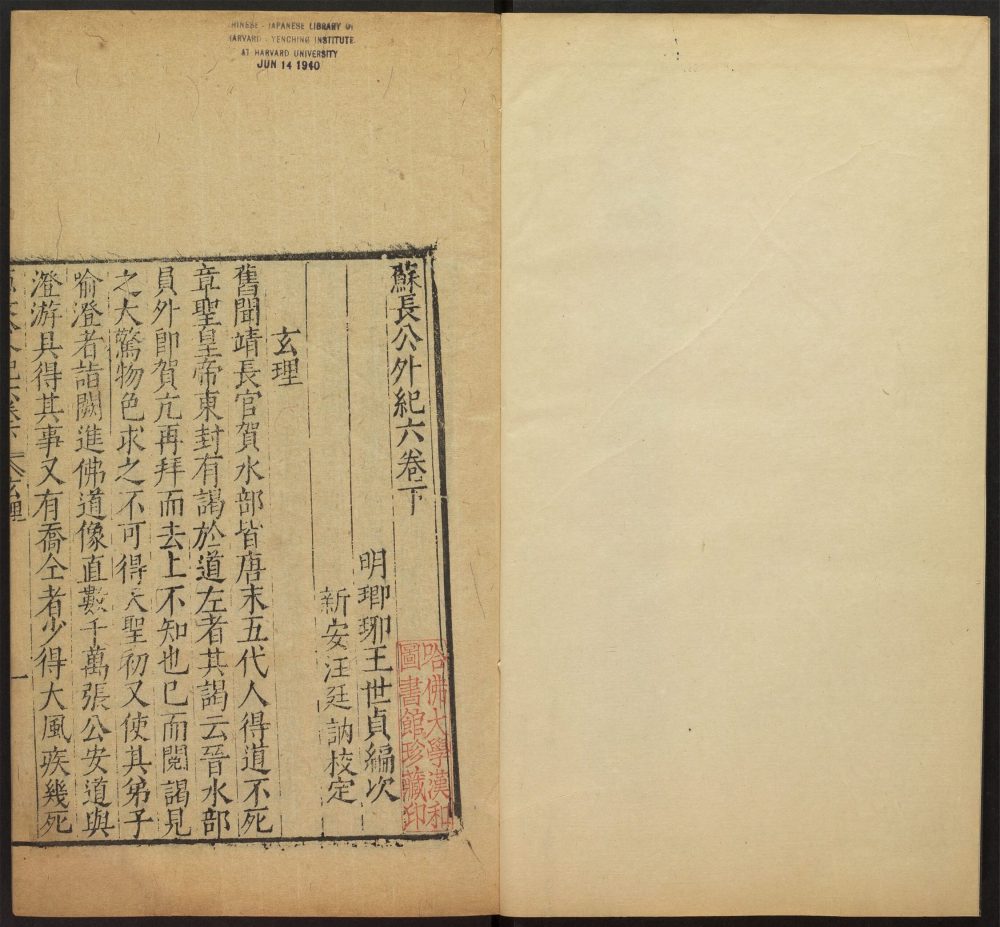 CHINESE - JAPANESE LIBRARY OF
HARVARD - YENCHING INSTITUTE
AT HARVARD UNIVERSITY
JUN 14 1940
蘇長公外紀六卷下
明瑯琊王世貞編次
新安汪廷訥校定
哈佛大學漢和
圖書館珍藏印
玄理
舊聞靖長官賀水部皆唐末五代人得道不死
章聖皇帝東封有謁於道左者其謁云晉水部
員外郎賀亢再拜而去上不知也已而閱謁見
之大驚物色求之不可得天聖初又使其弟子
喻澄者詣闕進佛道像直數千萬張公安道與
澄游具得其事又有喬仝者少得大風疾幾死
玄理
一